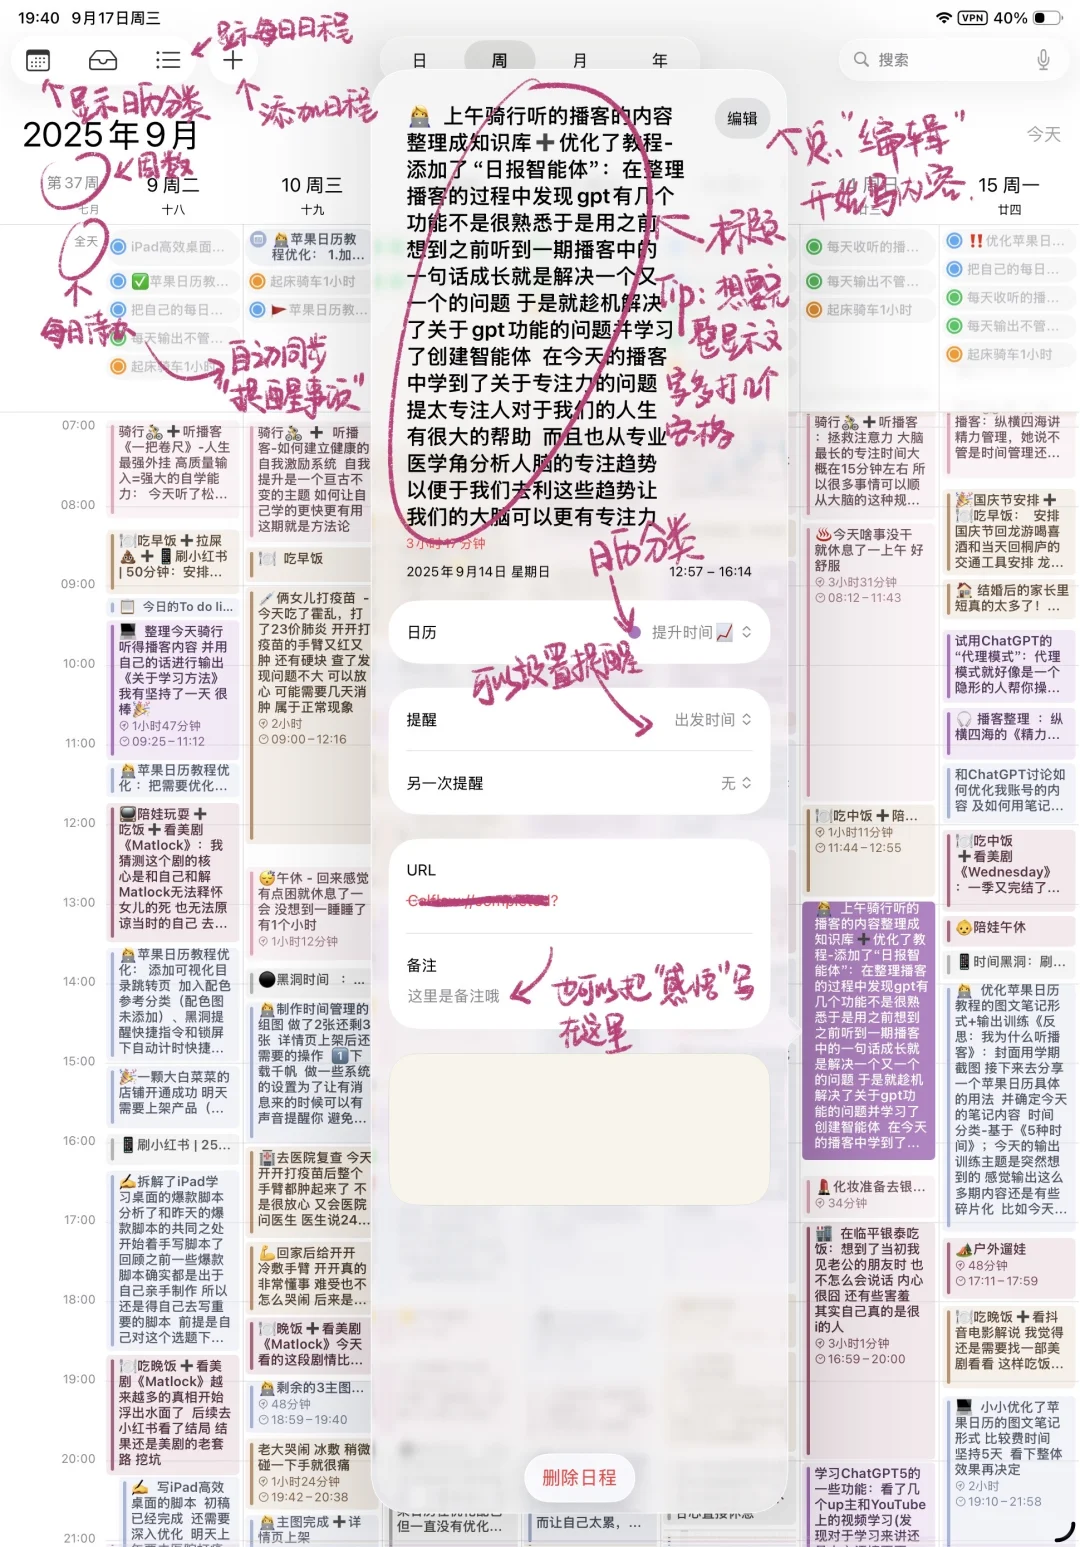 19:40 9月17日周三
VPN 40%
显示每日日程
日
周
月
年
搜索
显示日历分类
添加日程
2025年9月
今天
第37周
周数
七月
9 周二
十八
10 周三
十九
14 周日
廿三
15 周一
廿四
全天
不
每日待办
自动同步
“提醒事项”
iPad高效桌面…
✅苹果日历教…
把自己的每日…
每天输出不管…
起床骑车1小时
苹果日历教
程优化: 1.加…
起床骑车1小时
🚩苹果日历教…
每天收听的播…
每天输出不管…
起床骑车1小时
‼️优化苹果日…
把自己的每日…
每天收听的播…
每天输出不管…
起床骑车1小时
👩‍💻 上午骑行听的播客的内容
整理成知识库➕优化了教程-
添加了“日报智能体”：在整理
播客的过程中发现gpt有几个
功能不是很熟悉于是用之前
想到之前听到一期播客中的
一句话成长就是解决一个又
一个的问题 于是就趁机解决
了关于gpt功能的问题并学习
了创建智能体 在今天的播客
中学到了关于专注力的问题
提太专注人对于我们的人生
有很大的帮助 而且也从专业
医学角分析人脑的专注趋势
以便于我们去利这些趋势让
我们的大脑可以更有专注力
3小时17分钟
2025年9月14日 星期日
12:57 – 16:14
编辑
点“编辑”
开始写内容.
标题
Tip: 想要完
整显示文
字多打几个
空格
日历分类
日历
提升时间📈
可以设置提醒
提醒
出发时间
另一次提醒
无
URL
备注
这里是备注哦
也可以把“感悟”写
在这里
删除日程
07:00
08:00
09:00
10:00
11:00
12:00
13:00
14:00
15:00
16:00
17:00
18:00
19:00
20:00
21:00
骑行🚴➕听播客
《一把卷尺》-人生
最强外挂 高质量输
入=强大的自学能
力： 今天听了松…
🍽️吃早饭➕拉屎
💩➕📱刷小红书
| 50分钟：安排…
📋 今日的To do li…
💻 整理今天骑行
听得播客内容 并用
自己的话进行输出
《关于学习方法》
我有坚持了一天 很
棒🎉
1小时47分钟
09:25 – 11:12
👩‍💻苹果日历教程优
化 ：把需要优化…
📺陪娃玩耍➕
吃饭➕看美剧
《Matlock》：我
猜测这个剧的核
心是和自己和解
Matlock无法释怀
女儿的死 也无法原
谅当时的自己 去…
👩‍💻苹果日历教程优
化： 添加可视化目
录跳转页 加入配色
参考分类（配色图
未添加）、黑洞提
醒快捷指令和锁屏
下自动计时快捷…
🎉一颗大白菜菜的
店铺开通成功 明天
需要上架产品（…
📱刷小红书 | 25…
✍️拆解了iPad学
习桌面的爆款脚本
分析了和昨天的爆
款脚本的共同之处
开始着手写脚本了
回顾之前一些爆款
脚本确实都是出于
自己亲手制作 所以
还是得自己去写重
要的脚本 前提是自
己对这个选题下…
🍽️吃晚饭➕看美
剧《Matlock》越
来越多的真相开始
浮出水面了 后续去
小红书看了结局 结
果还是美剧的老套
路 挖坑
✍️ 写iPad高效
桌面的脚本 初稿
已经完成 还需要
深入优化 明天上
骑行🚴 ➕ 听播
客-如何建立健康的
自我激励系统 自我
提升是一个亘古不
变的主题 如何让自
己学的更快更有用
这期就是方法论
🍽️ 吃早饭
💉俩女儿打疫苗 -
今天吃了霍乱，打
了23价肺炎 开开打
疫苗的手臂又红又
肿 还有硬块 查了发
现问题不大 可以放
心 可能需要几天消
肿 属于正常现象
2小时
09:00 – 12:16
😴午休 - 回来感觉
有点困就休息了一
会 没想到一睡睡了
有1个小时
1小时12分钟
⚫黑洞时间 ：…
👩‍💻制作时间管理的
组图 做了2张还剩3
张 详情页上架后还
需要的操作 1️⃣下
载千帆 做一些系统
的设置为了让有消
息来的时候可以有
声音提醒你 避免…
🏥去医院复查 今天
开开打疫苗后整个
手臂都肿起来了 不
是很放心 又会医院
问医生 医生说24…
💪回家后给开开
冷敷手臂 开开真的
非常懂事 难受也不
怎么哭闹 后来是…
🍽️晚饭➕看美剧
《Matlock》今天
看的这段剧情比…
👩‍💻剩余的3主图…
48分钟
18:59 – 19:40
老大哭闹 冰敷 稍微
碰一下手就很痛
1小时24分钟
19:42 – 20:38
👩‍💻主图完成➕详
情页上架
但一直没有优化…
而让自己太累，…
骑行🚴➕听播客
：拯救注意力 大脑
最长的专注时间大
概在15分钟左右 所
以很多事情可以顺
从大脑的这种规…
♨️今天啥事没干
就休息了一上午 好
舒服
3小时31分钟
08:12 – 11:43
🍽️吃中饭➕陪…
1小时11分钟
11:44 – 12:55
👩‍💻 上午骑行听的
播客的内容整理成
知识库➕优化了教
程-添加了“日报智
能体”：在整理播客
的过程中发现gpt有
几个功能不是很熟
悉于是用之前想到
之前听到一期播客
中的一句话成长就
是解决一个又一个
的问题 于是就趁机
解决了关于gpt功
能的问题并学习了
创建智能体 在今天
的播客中学到了…
💄化妆准备去银…
34分钟
🏬 在临平银泰吃
饭：想到了当初我
见老公的朋友时 也
不怎么会说话 内心
很囧 还有些害羞
其实自己真的是很
i的人
3小时1分钟
16:59 – 20:00
学习ChatGPT5的
一些功能：看了几
个up主和YouTube
上的视频学习(发
现对于学习来讲还
播客：纵横四海讲
精力管理，她说不
管是时间管理还…
🎉国庆节安排➕
🍽️吃早饭： 安排
国庆节回龙游喝喜
酒和当天回桐庐的
交通工具安排 龙…
🏠 结婚后的家长里
短真的太多了！…
试用ChatGPT的
“代理模式”：代理
模式就好像是一个
隐形的人帮你操…
🎧 播客整理 ：纵
横四海的《精力…
和ChatGPT讨论如
何优化我账号的内
容 及如何用笔记…
🍽️吃中饭
➕看美剧
《Wednesday》
：一季又完结了…
👶陪娃午休
📱时间黑洞：刷…
👩‍💻 优化苹果日历
教程的图文笔记形
式+输出训练《反
思：我为什么听播
客》：封面用学期
截图 接下来去分享
一个苹果日历具体
的用法 并确定今天
的笔记内容 时间
分类-基于《5种时
间》；今天的输出
训练主题是突然想
到的 感觉输出这么
多期内容还是有些
碎片化 比如今天…
🏕️户外遛娃
48分钟
17:11 – 17:59
🍽️吃晚饭➕看抖
音电影解说 我觉得
还是需要找一部美
剧看看 这样吃饭…
💻 小小优化了苹
果日历的图文笔记
形式 比较费时间
坚持5天 看下整体
效果再决定
2小时
19:10 – 21:58